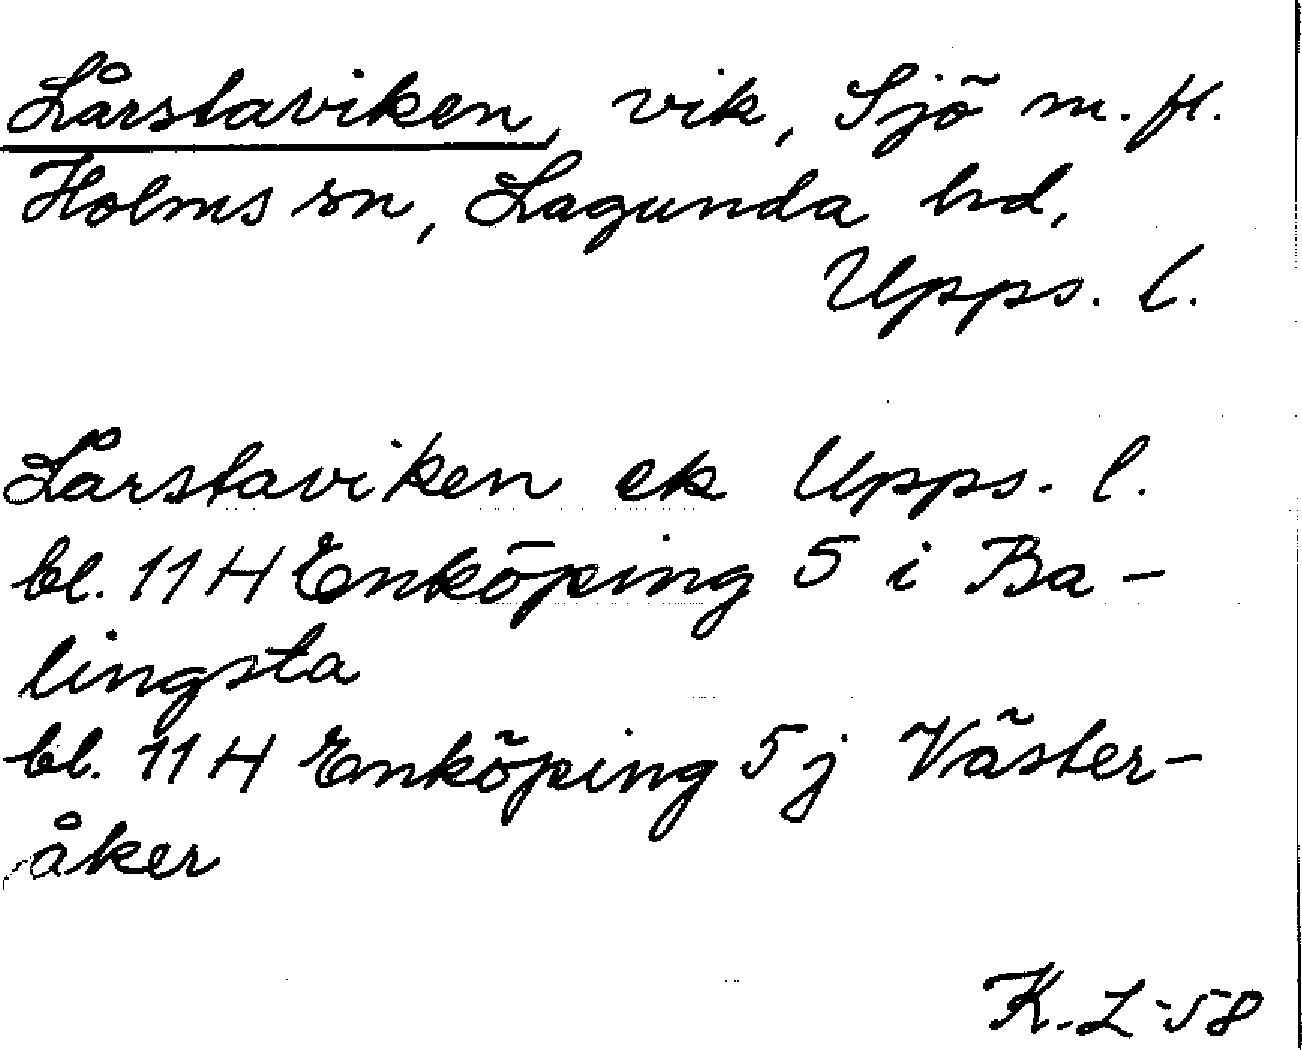 Lårstaviken, vik, Sjö m. fl.
Holms sn, Lagunda hd,
Upps. l.
Lårstaviken ek Upps. l.
bl. 11 H Enköping 5 i Ba-
lingsta
bl. 11 H Enköping 5 j Väster-
åker
K. L -58